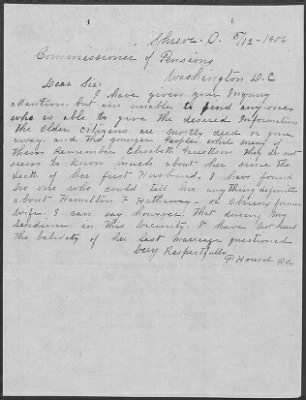 Shreve. O. 5/12-1906
Commissioner of Pensions
Washington D.C
Dear Sir:
I have given your Inquiry
attention. but am unable to find any ones
who is able to give the desired Information
the Older Citizens are mostly dead or gone
away. and the younger People. while many of
them remember Elisabeth they do not
seem to know much about her since the
death of her first Husband. I have found
no one who could tell me any thing definite
about Hamilton F Hathaway. or Obriens former
wife. I can say however, that during my
Residence in this Vicinity. I have not heard
the Validity of her last marriage questioned
Very Respectfully
P Housel